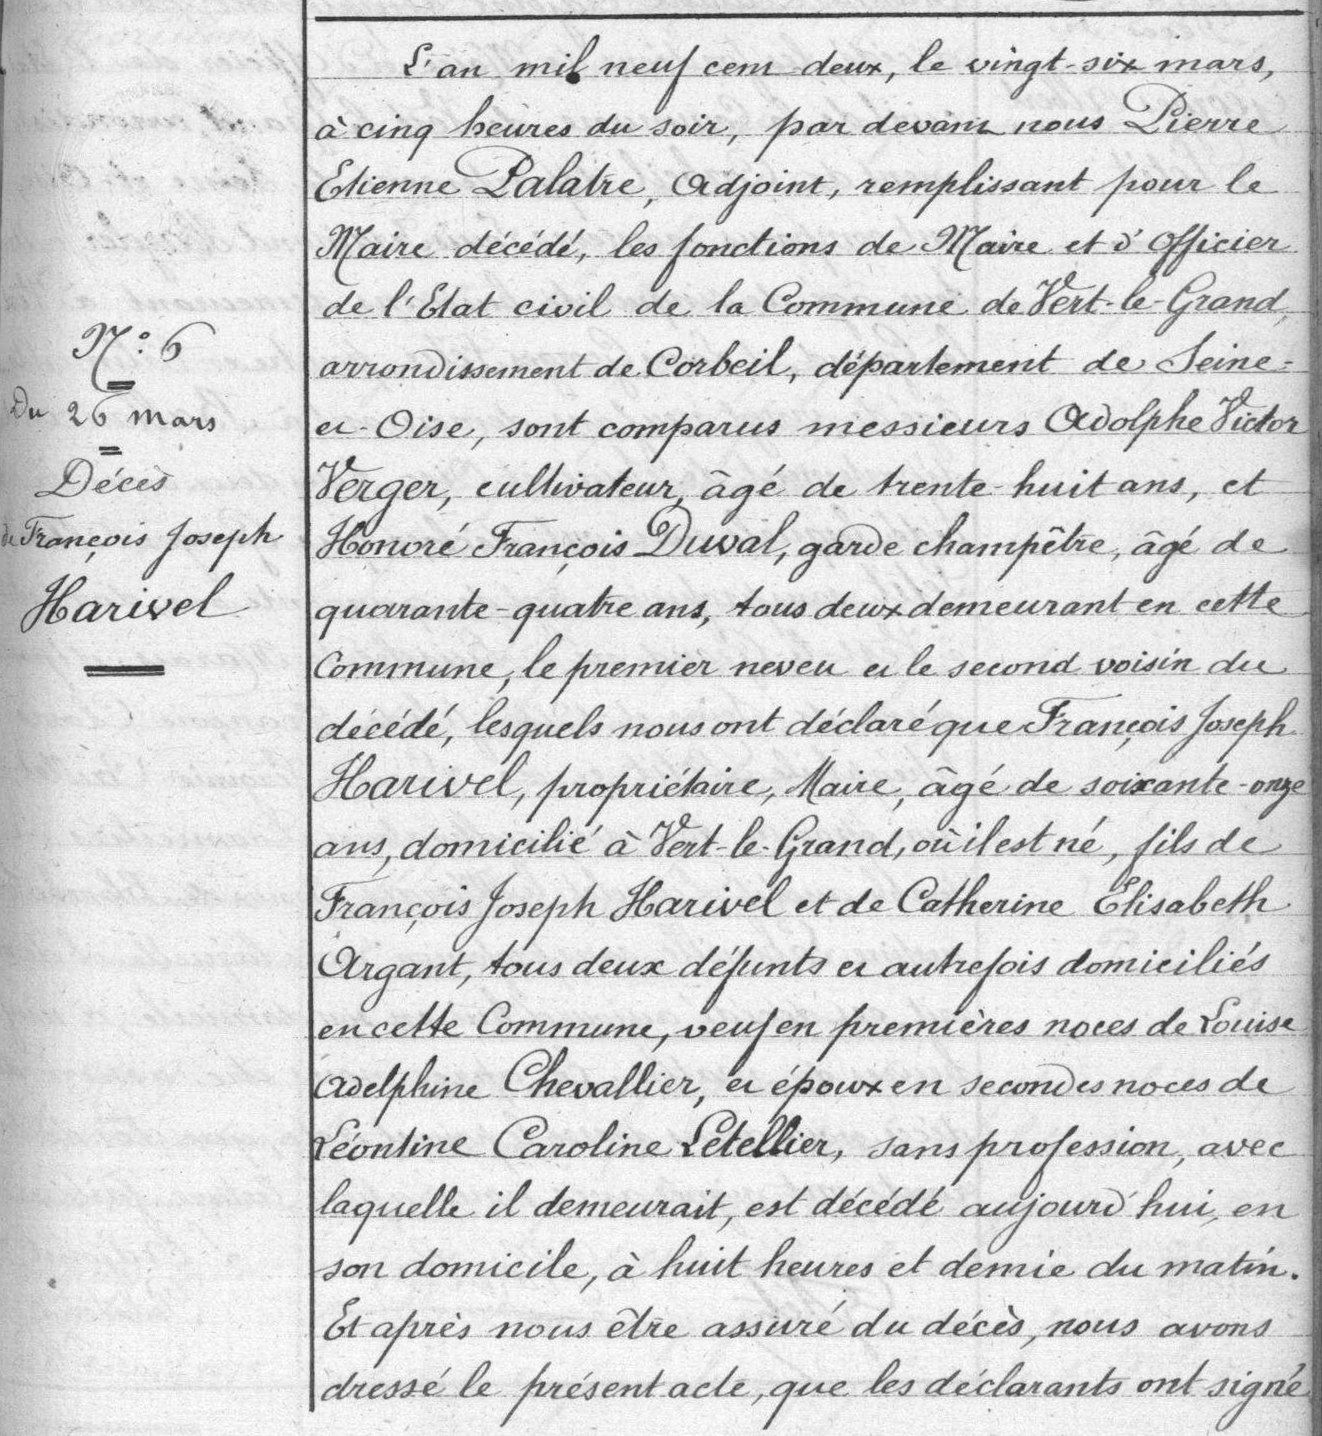 N.º 6
Du 26 mars
Décès
de François Joseph
Harivel
L'an mil neuf cent deux, le vingt-six mars,
à cinq heures du soir, par devant nous Pierre
Etienne Palatre, Adjoint, remplissant pour le
Maire décédé, les fonctions de Maire et d'Officier
de l'Etat civil de la Commune de Vert-le-Grand,
arrondissement de Corbeil, département de Seine-
et-Oise, sont comparus messieurs Adolphe Victor
Verger, cultivateur, âgé de trente-huit ans, et
Honoré François Duval, garde champêtre, âgé de
quarante-quatre ans, tous deux demeurant en cette
Commune, le premier neveu et le second voisin du
décédé, lesquels nous ont déclaré que François Joseph
Harivel, propriétaire, Maire, âgé de soixante-onze
ans, domicilié à Vert-le-Grand, où il est né, fils de
François Joseph Harivel et de Catherine Elisabeth
Argant, tous deux défunts et autrefois domiciliés
en cette Commune, veuf en premières noces de Louise
Adelphine Chevallier, et époux en secondes noces de
Léontine Caroline Letellier, sans profession, avec
laquelle il demeurait, est décédé aujourd'hui, en
son domicile, à huit heures et demie du matin.
Et après nous être assuré du décès, nous avons
dressé le présent acte, que les déclarants ont signé